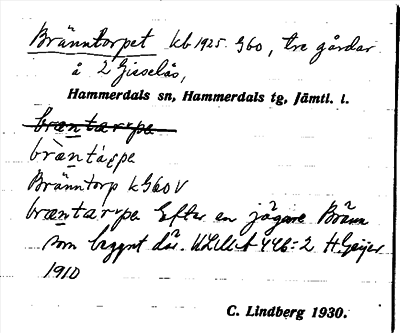 Bränntorpet kb 1925. G60, tre gårdar
å 2 Gisselås,
Hammerdals sn, Hammerdals tg, Jämtl. l.
bræntarpe
Bränntorp kG60V
bræntarpe Efter en jägare Bränn
som byggnt där. H. Geijer
1910
C. Lindberg 1930.